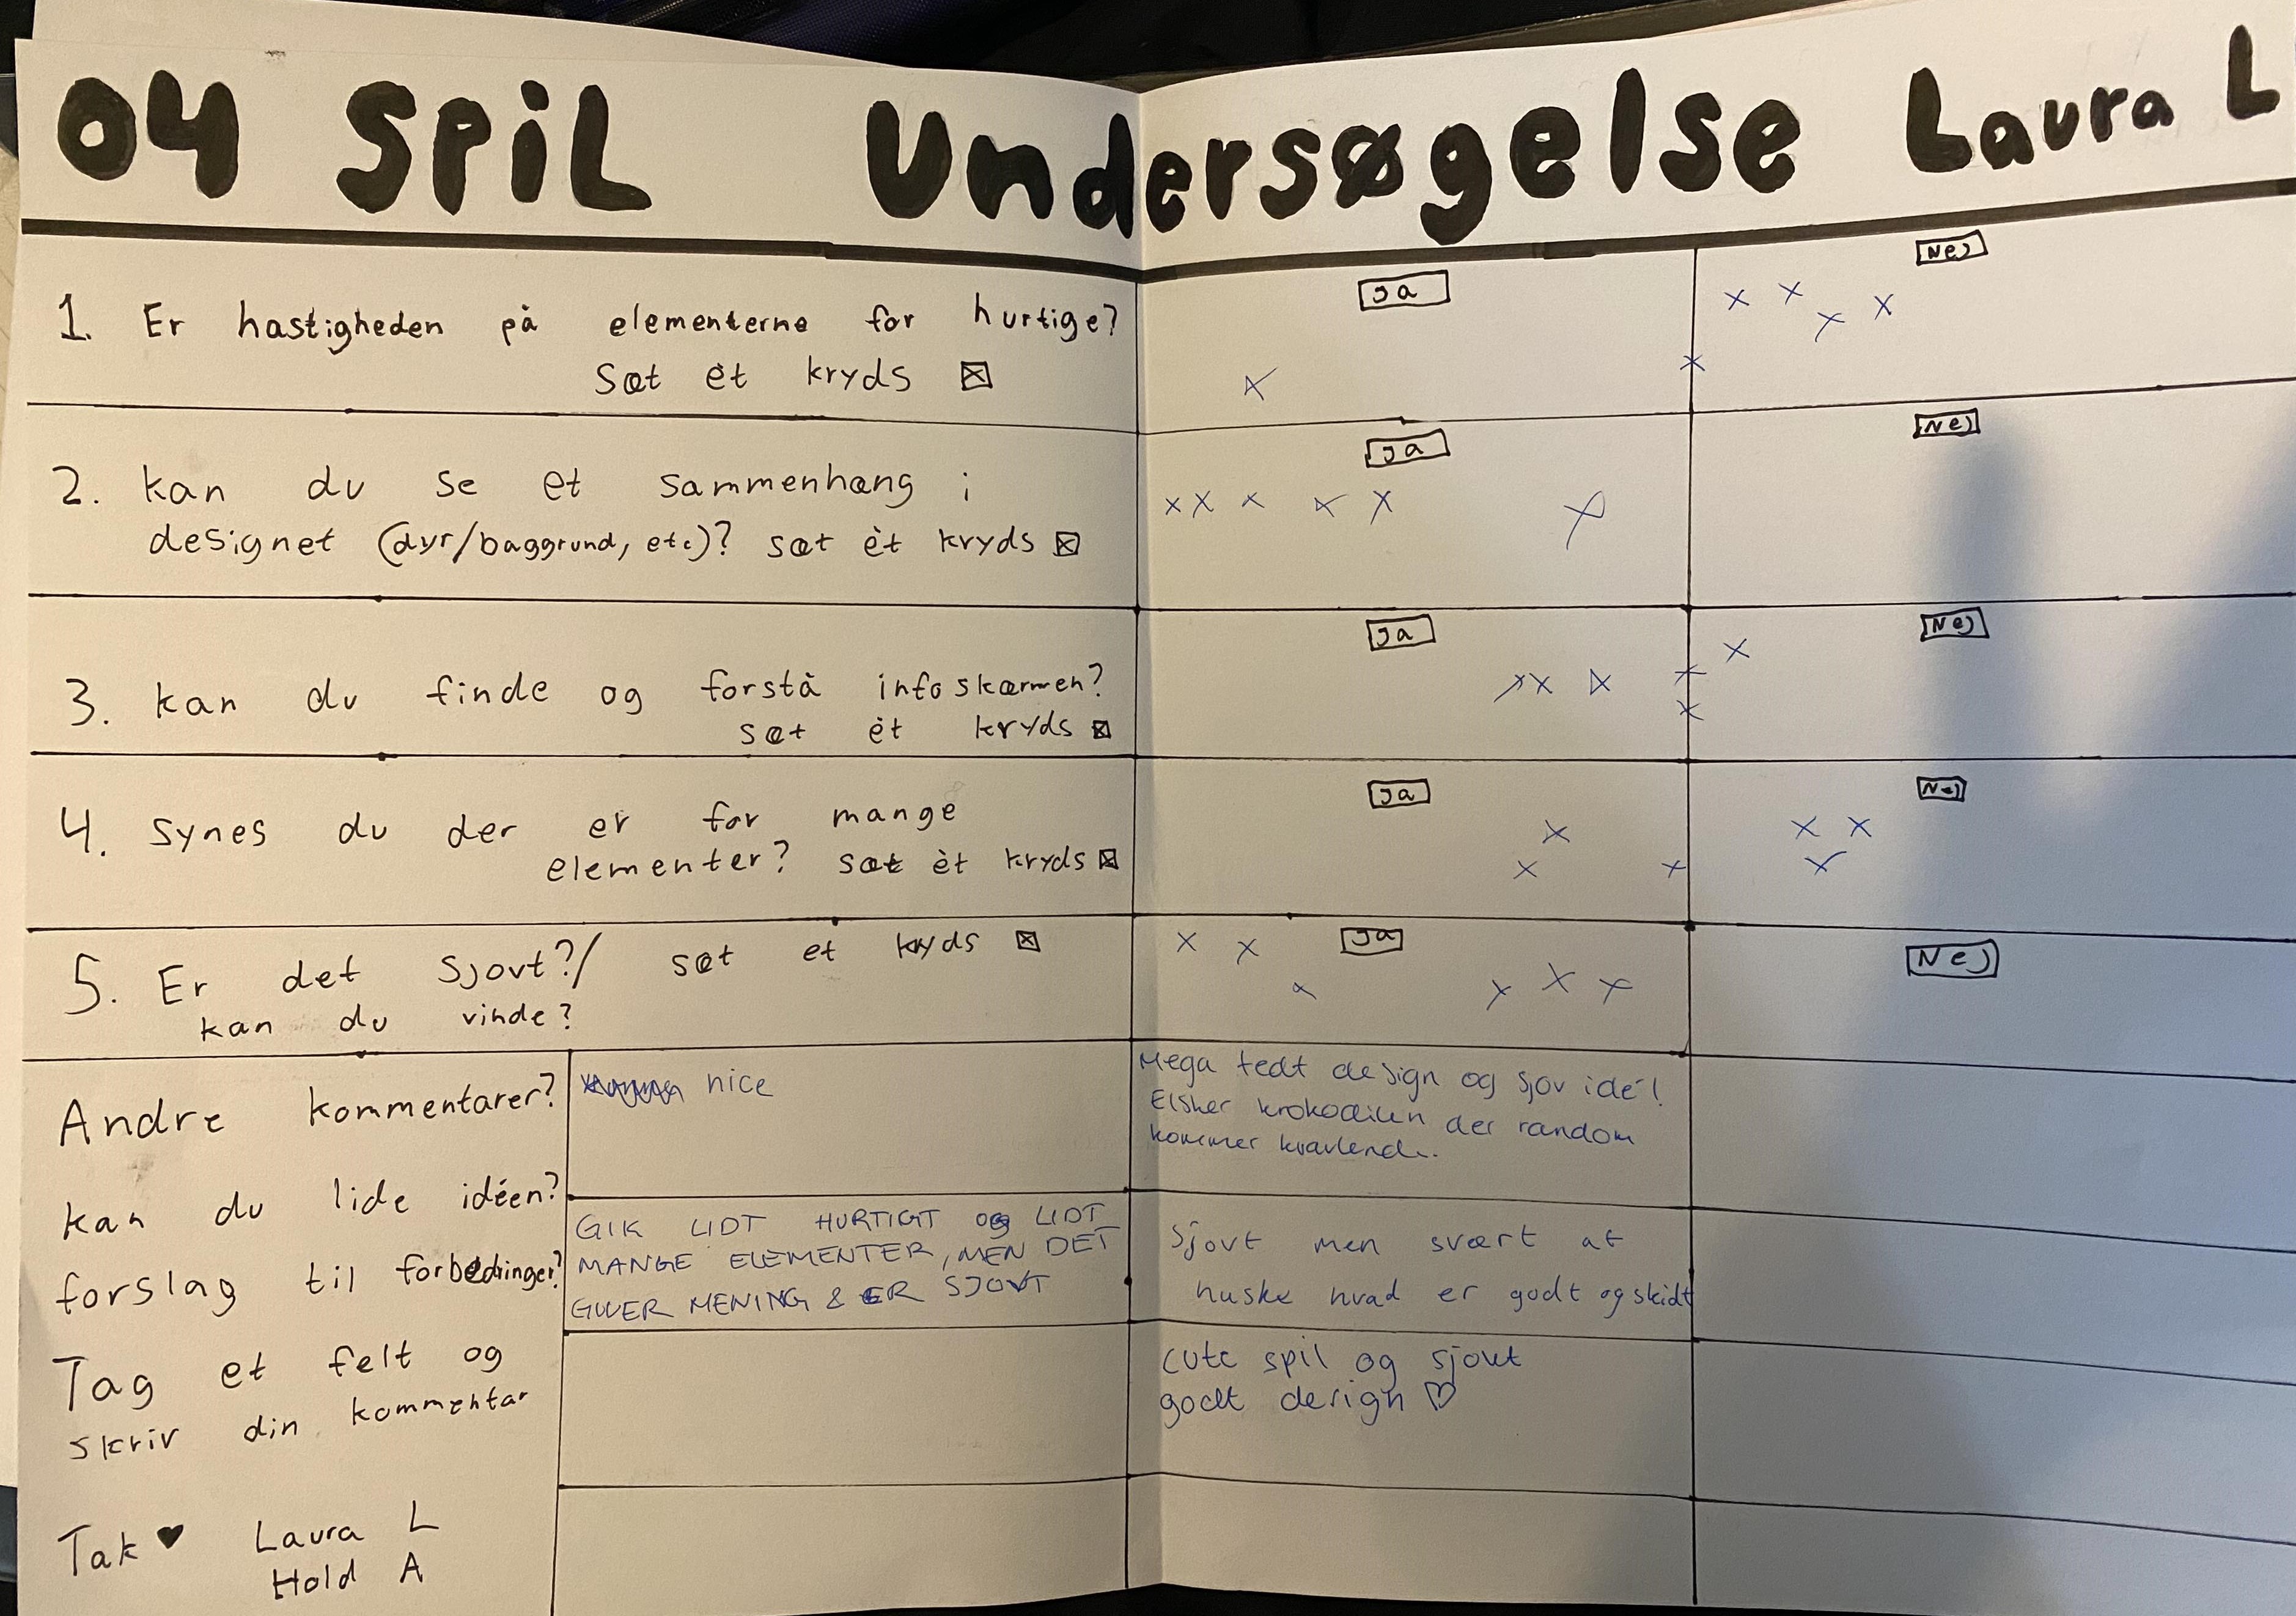 04 SPiL Undersøgelse Laura L
1. Er hastigheden på elementerne for hurtige?
Sæt ét kryds
Ja
Nej
2. kan du se et sammenhæng i
designet (dyr/baggrund, etc)? sæt ét kryds
Ja
Nej
3. kan du finde og forstå infoskærmen?
sæt ét kryds
Ja
Nej
4. synes du der er for mange
elementer? sæt ét kryds
Ja
Nej
5. Er det sjovt?/ sæt et kryds
kan du vinde?
Ja
Nej
Andre kommentarer?
kan du lide idéen?
forslag til forbedringer?
Tag et felt og
skriv din kommentar
Tak ♥ Laura L
Hold A
nice
Mega fedt design og sjov idé!
Elsker krokodillen der random
kommer kravlende.
GIK LIDT HURTIGT OG LIDT
MANGE ELEMENTER, MEN DET
GIVER MENING & ER SJOVT
Sjovt men svært at
huske hvad er godt og skidt
cute spil og sjovt
godt design ♡